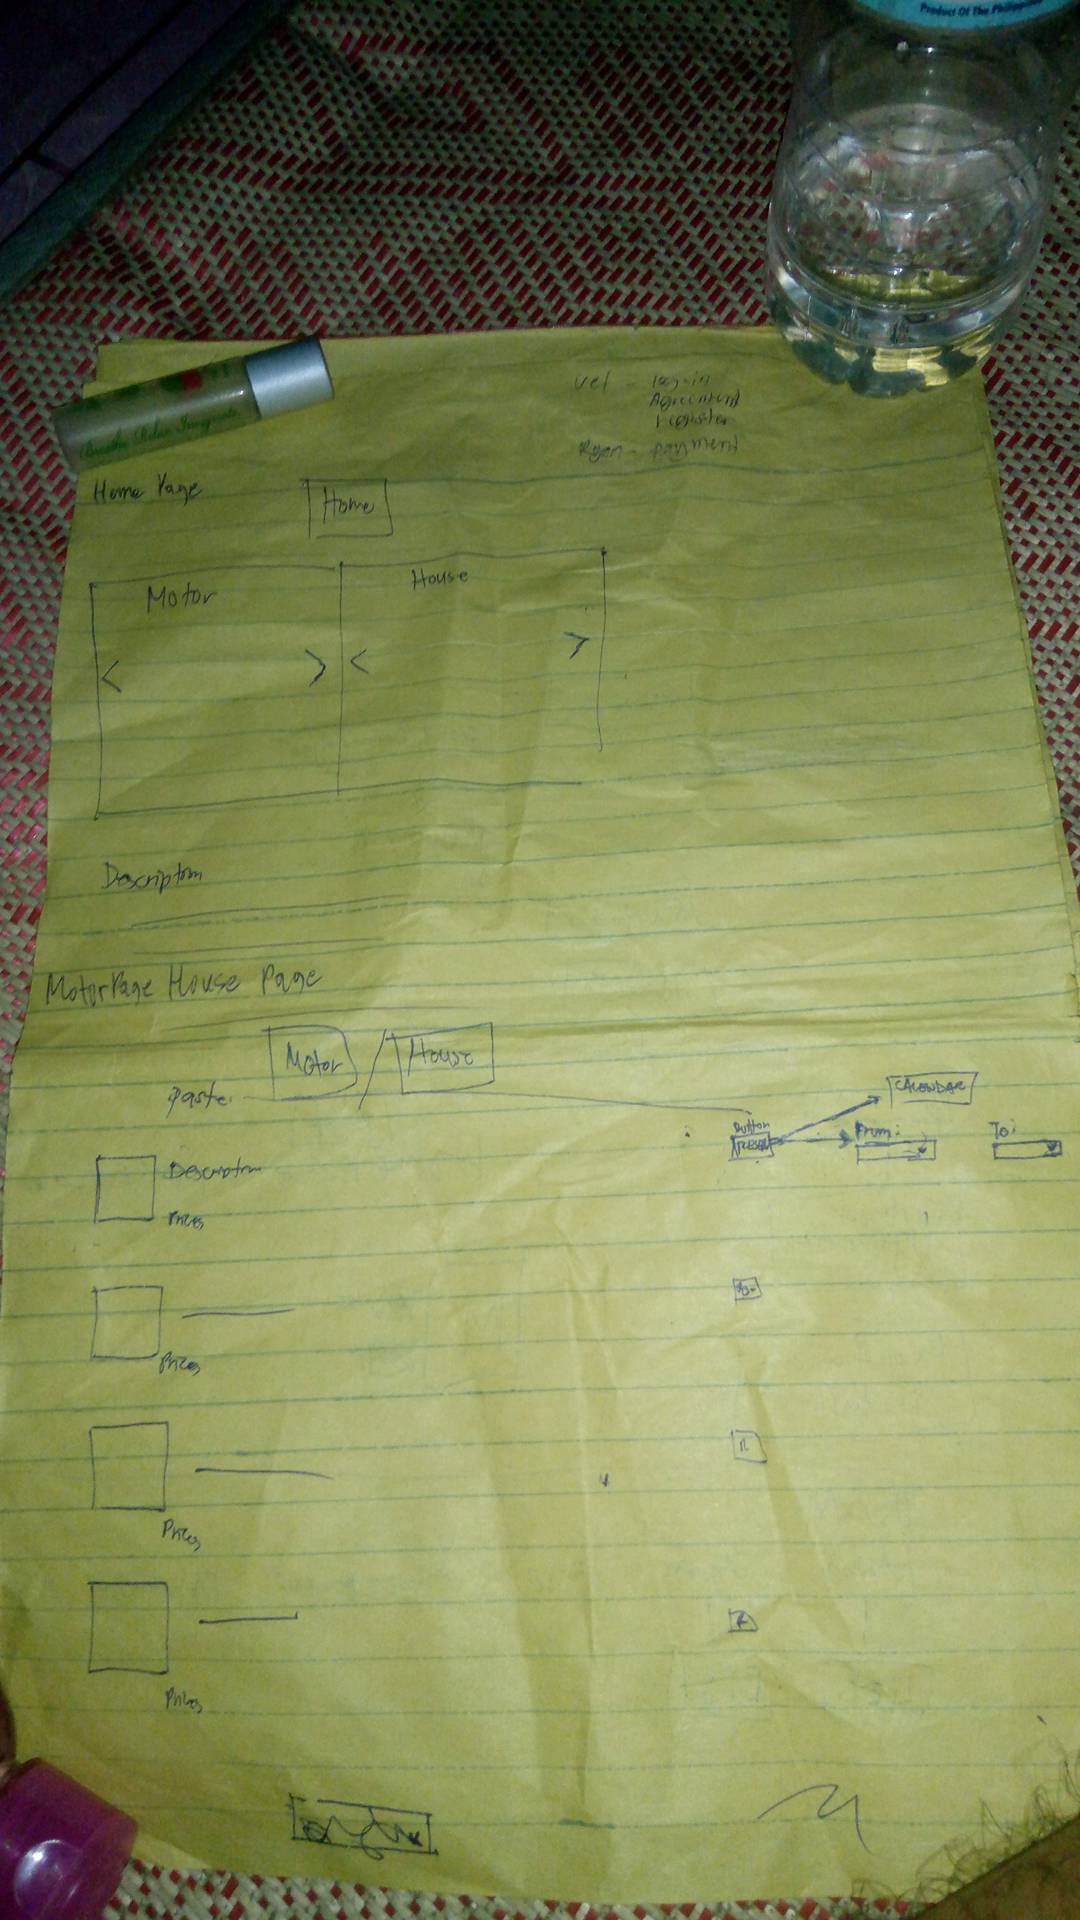 Product Of The Philippines
Vel - login
Agreement
register
Ryan - payment
Home Page
Home
Motor
House
<
>
<
>
Description
Motor Page House Page
Motor / House
CALENDAR
Button
From:
To:
Description
Prices
Prices
R
Prices
R
Prices